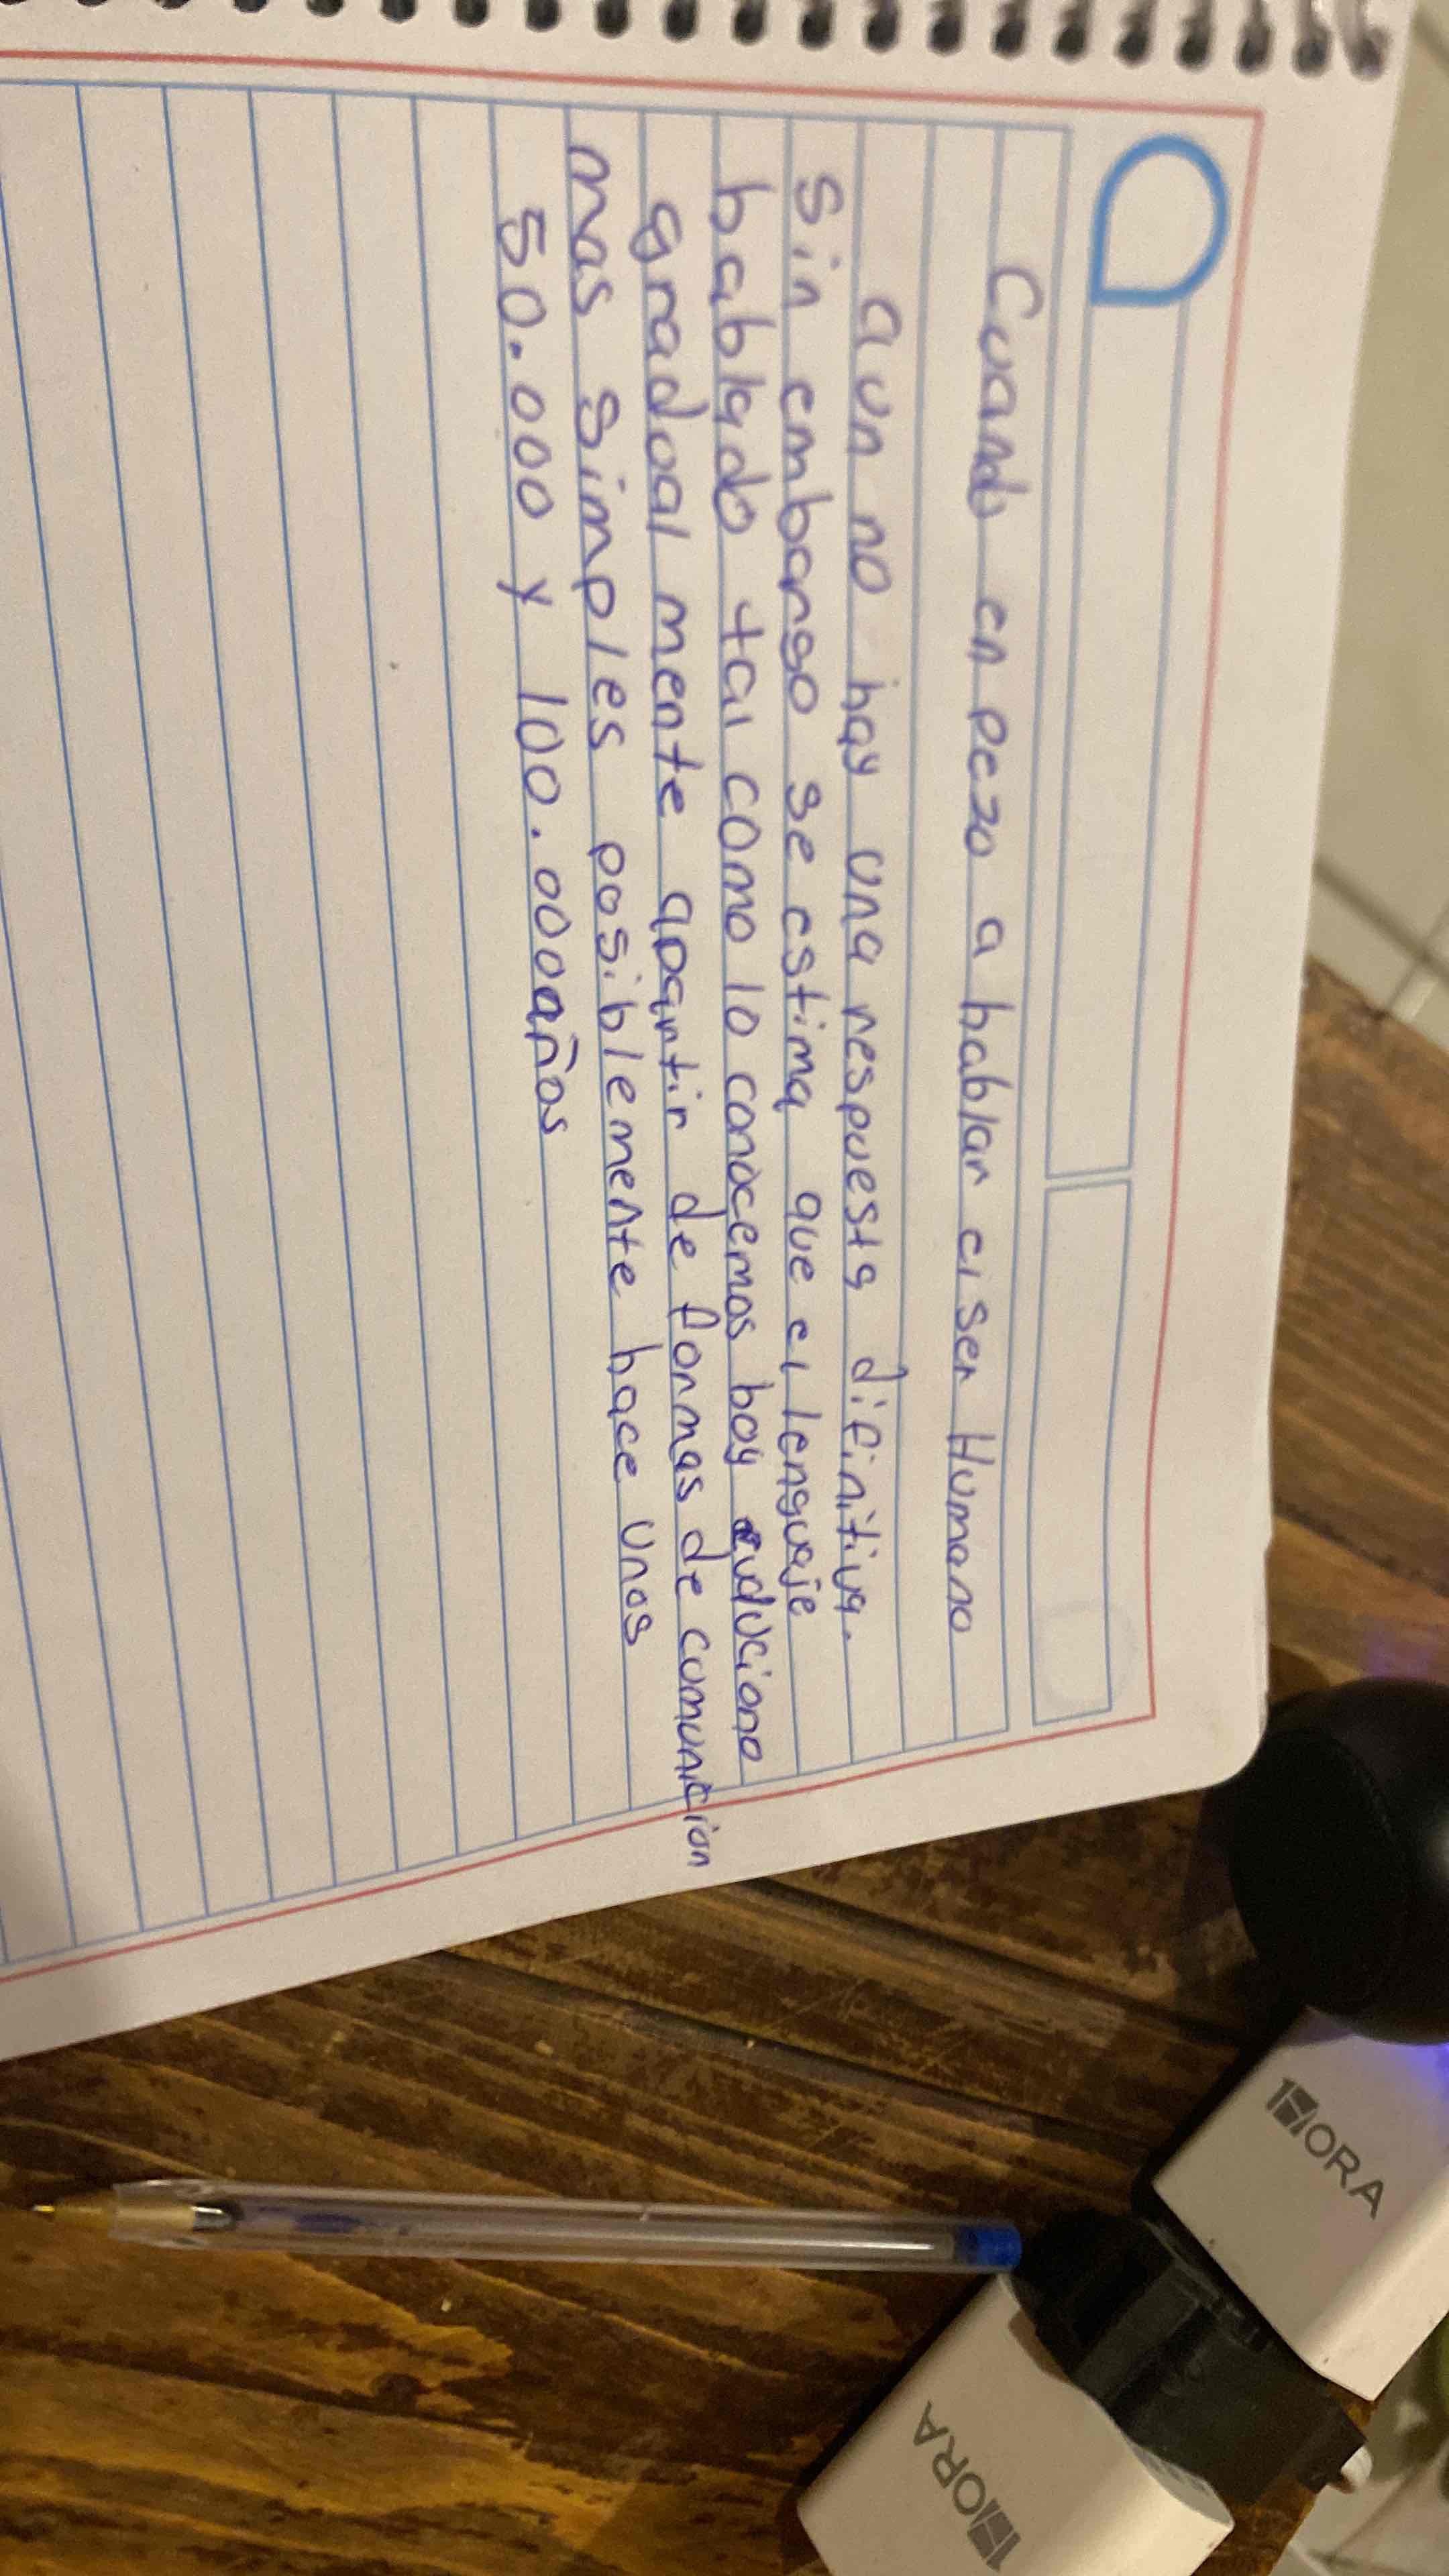 Cuando en pezo a hablar el ser Humano
aun no hay una respuesta difinitiva.
sin embargo se estima que el lenguaje
hablado tal como lo conocemos hoy evduciono
gradoal mente apartir de formas de comunicion
mas simples posiblemente hace unos
50.000 y 100.000 años
1HORA
1HORA